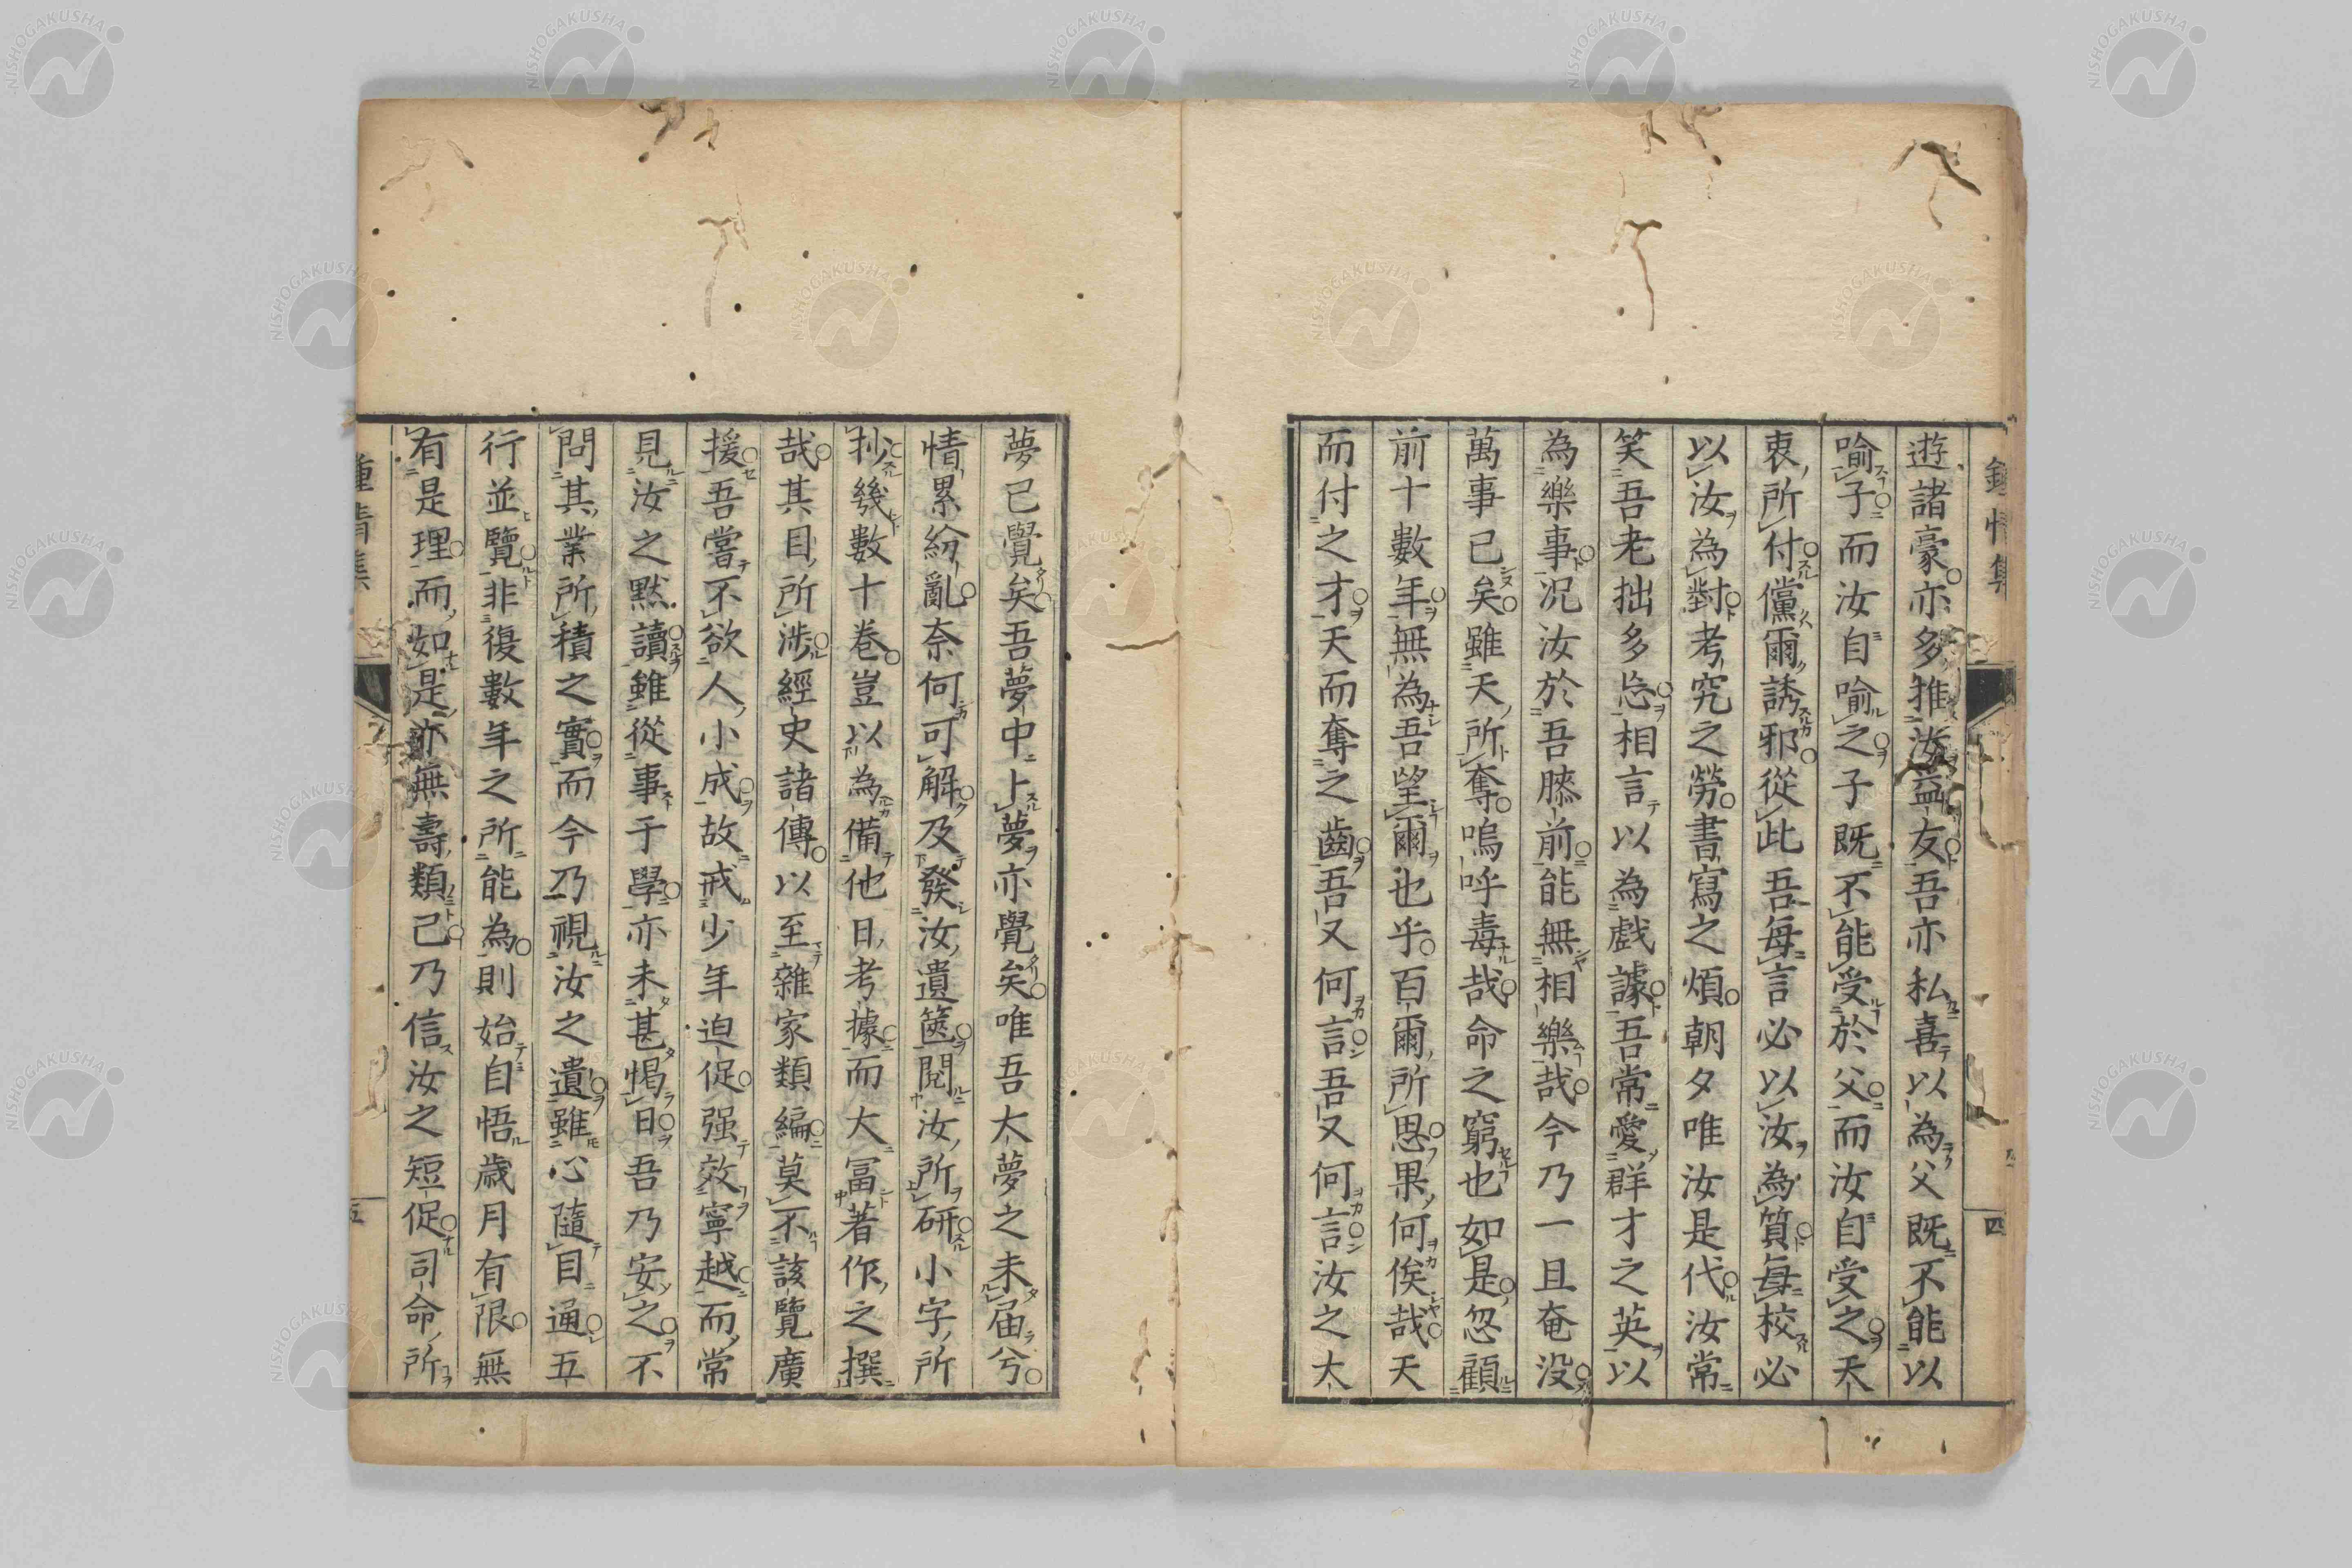 鍾情集
四
遊諸豪亦多推汝益友吾亦私喜以為父既不能以
喻子而汝自喻之子既不能受於父而汝自受之天
衷所付儻爾誘邪從此吾每言必以汝為質每校必
以汝為對考究之勞書寫之煩朝夕唯汝是代汝常
笑吾老拙多忘相言以為戲謔吾常愛群才之英以
為樂事況汝於吾膝前能無相樂哉今乃一旦奄没
萬事已矣雖天所奪嗚呼毒哉命之窮也如是忽顧
前十數年無為吾望爾也乎百爾所思果何俟哉天
而付之才天而奪之齒吾又何言吾又何言汝之大
夢已覺矣吾夢中卜夢亦覺矣唯吾大夢之未届兮
情累紛亂奈何可解及發汝遺篋閲汝所研小字所
抄幾數十卷豈以為備他日考據而大冨著作之撰
哉其目所涉經史諸傳以至雜家類編莫不該覽廣
援吾嘗不欲人小成故戒少年迫促强效寧越而常
見汝之黙讀雖從事于學亦未甚愒日吾乃安之不
問其業所積之實而今乃視汝之遺雖心隨目通五
行並覽非復數年之所能為則始自悟歳月有限無
有是理而如是亦無壽類已乃信汝之短促司命所
鍾情集
五
NISHOGAKUSHA